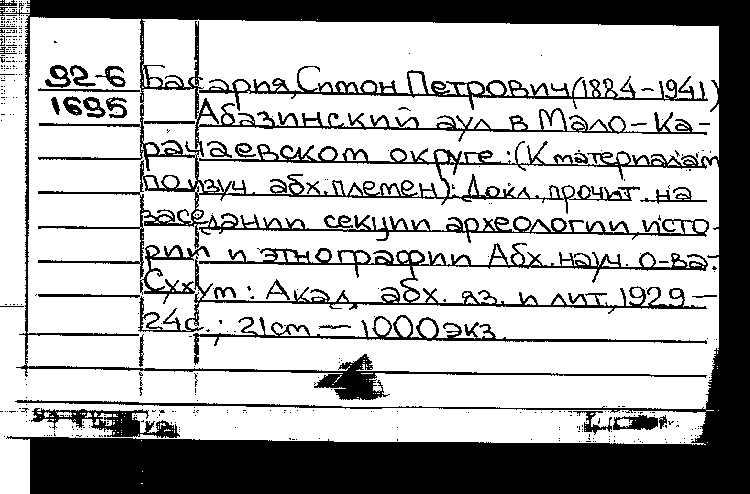 92-6 Басария, Симон Петрович (1884-1941)
1695 Абазинский аул в Мало-Ка-
рачаевском округе: (К материалам
по изуч. абх. племен): Докл., прочит. на
заседании секции археологии, исто-
рии и этнографии Абх. науч. о-ва.
Сухум: Акад. абх. яз. и лит., 1929.-
24с.; 21cm.— 1000экз.